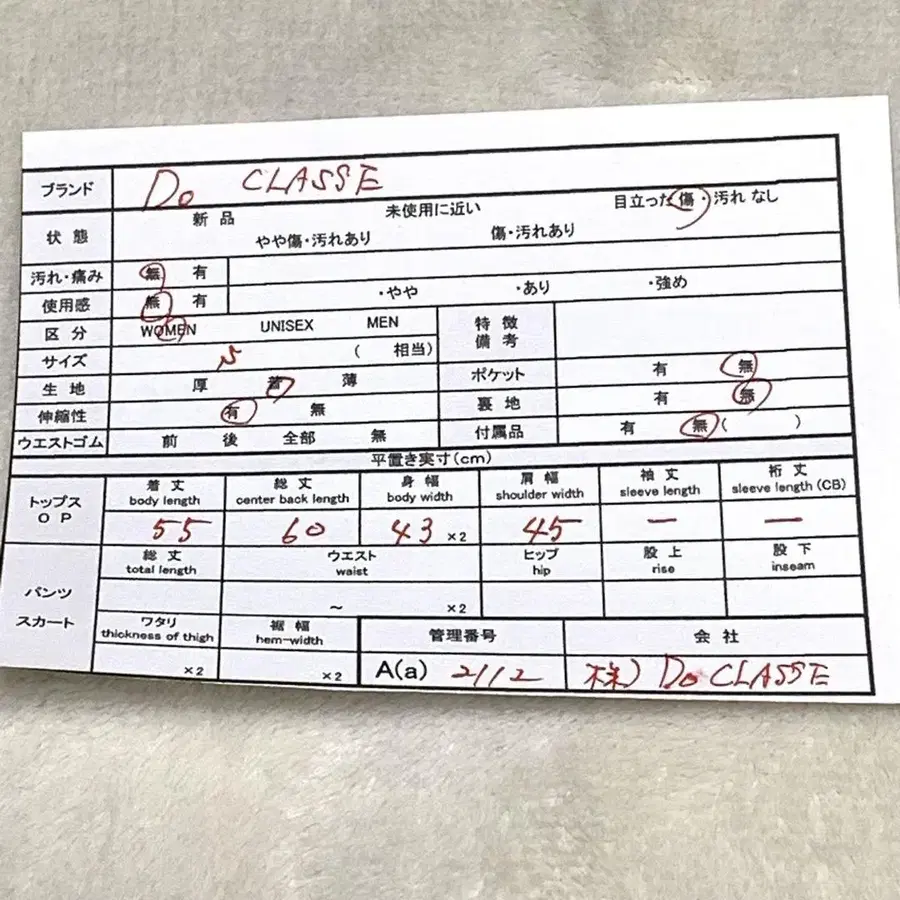 ブランド Do CLASSE
状態 新品 未使用に近い 目立った傷・汚れ なし
やや傷・汚れあり 傷・汚れあり
汚れ・痛み 無 有
使用感 無 有 ・やや ・あり ・強め
区分 WOMEN UNISEX MEN 特徴 備考
サイズ ( 相当)
生地 厚 薄 ポケット 有 無
伸縮性 有 無 裏地 有 無
ウエストゴム 前 後 全部 無 付属品 有 無 ( )
平置き実寸(cm)
トップス OP
着丈 総丈 身幅 肩幅 袖丈 裄丈
body length center back length body width shoulder width sleeve length sleeve length (CB)
55 60 43 ×2 45 — —
パンツ スカート
総丈 ウエスト ヒップ 股上 股下
total length waist hip rise inseam
~ ×2
ワタリ 裾幅 管理番号 会社
thickness of thigh hem-width
×2 ×2 A(a) 2112 株) Do CLASSE